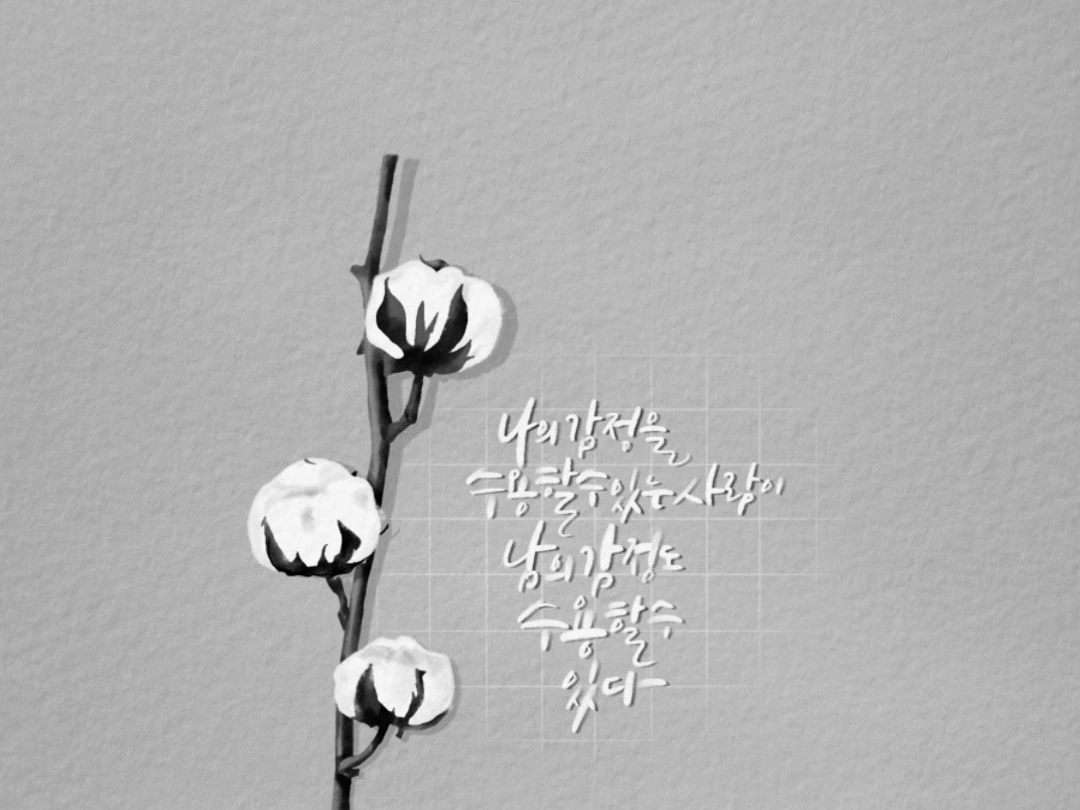 나의 감정을
수용할 수 있는 사람이
남의 감정도
수용할 수
있다